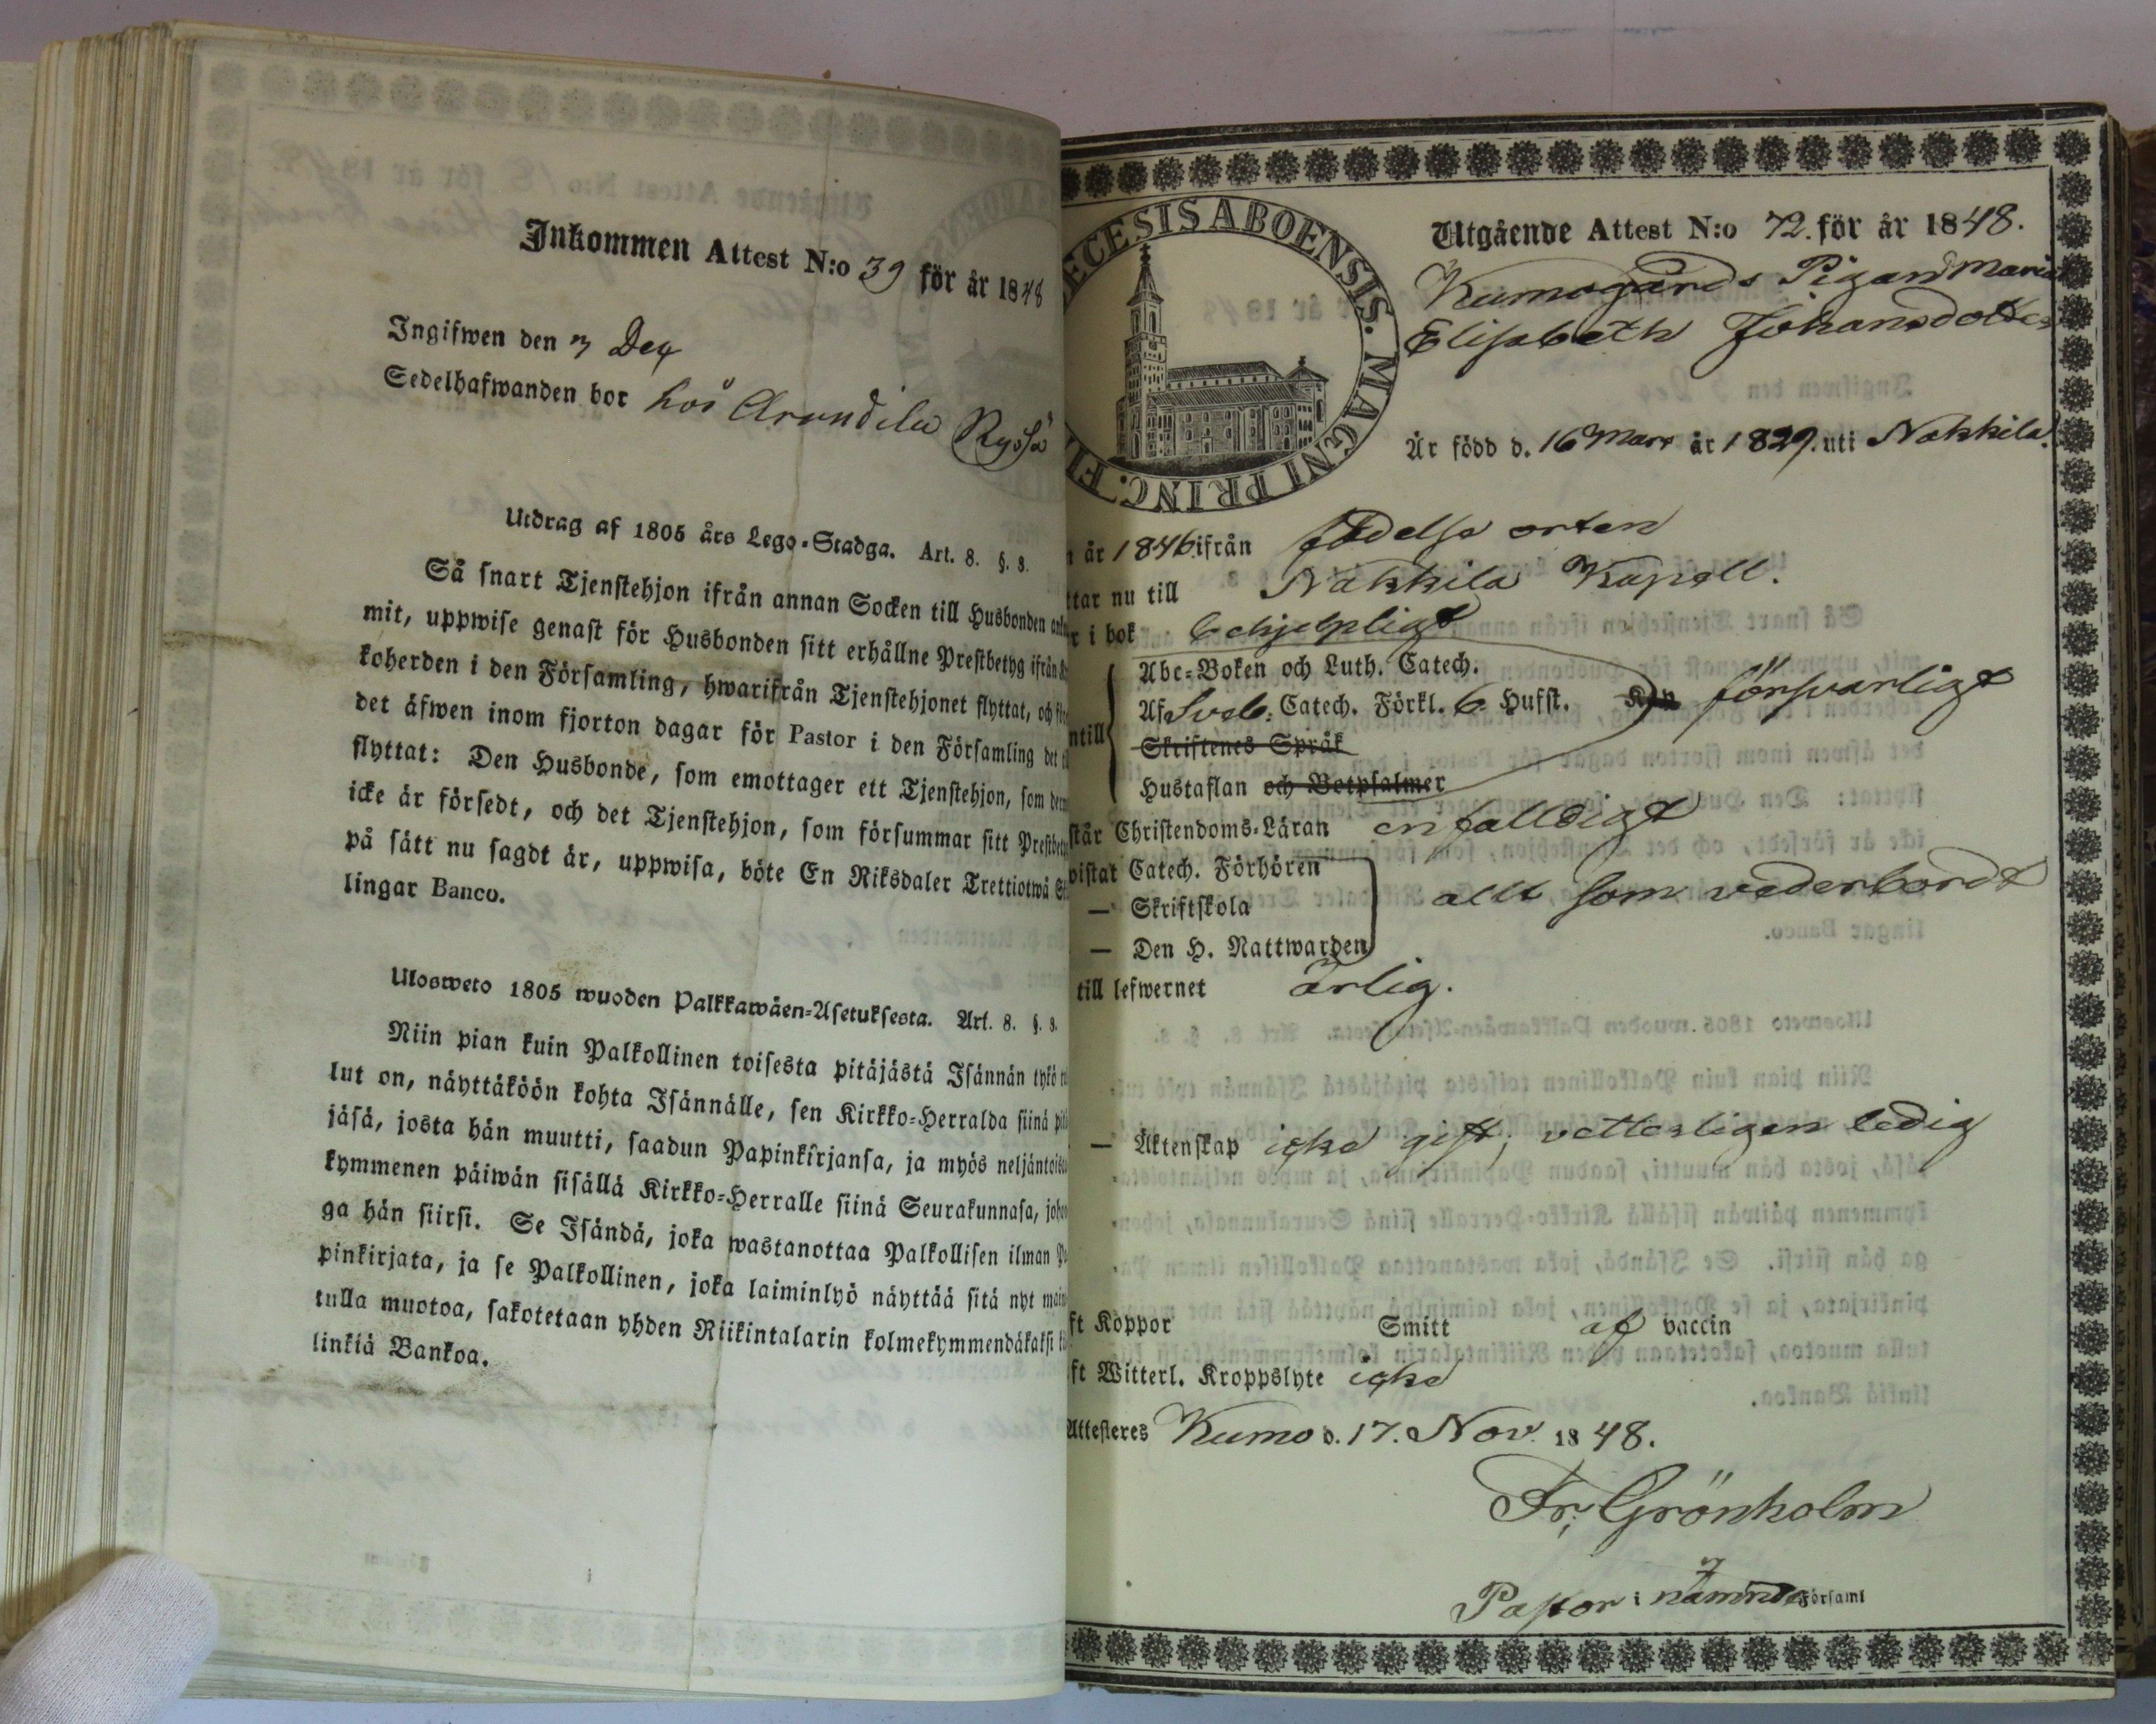 Inkommen Attest N:o 39 för år 1848
Ingifwen den 3 Dec
Sedelhafwanden bor hos Arundila Ryssä
Utdrag af 1805 års Lego-Stadga. Art. 8. §. 8.
Så snart Tjenstehjon ifrån annan Socken till Husbonden
mit, uppwise genast för Husbonden sitt erhållne Prestbetyg ifrån
koherden i den Församling, hwarifrån Tjenstehjonet flyttat, och
det äfwen inom fjorton dagar för Pastor i den Församling det
flyttat: Den Husbonde, som emottager ett Tjenstehjon, som
icke är försedt, och det Tjenstehjon, som försummar sitt
på sätt nu sagdt är, uppwisa, böte En Riksdaler Trettiotwå
lingar Banco.
Ulosweto 1805 wuoden Palkkawäen-Asetuksesta. Art. 8. §. 8.
Niin pian kuin Palkollinen toisesta pitäjästä Isännän tykö
lut on, näyttäköön kohta Isännälle, sen Kirkko-Herralda siinä
jäsä, josta hän muutti, saadun Papinkirjansa, ja myös
kymmenen päiwän sisällä Kirkko-Herralle siinä Seurakunnasa,
ga hän siirsi. Se Isändä, joka wastanottaa Palkollisen ilman
pinkirjata, ja se Palkollinen, joka laiminlyö näyttää sitä nyt
tulla muotoa, sakotetaan yhden Riikintalarin kolmekymmendäkaksi
linkiä Bankoa.
ECESIS ABOENSIS. MAGNI PRINC. FI
Utgående Attest N:o 72. för år 1848.
Kumogårds Pigan Maria
Elisabeth Johansdotter
Är född d. 16 Mars år 1829. uti Nakkila.
år 1846 ifrån födelse orten
tar nu till Nakkila Kapell.
r i bok behjelpligt
Abc-Boken och Luth. Catech.
Af Sveb. Catech. Förkl. 6 Hufst. försvarligt
ntill
Skriftenes Språk
Hustaflan och Botpsalmer
står Christendoms-Läran enfalldigt
vistat Catech. Förhören
— Skriftskola allt som vederbordt
— Den H. Nattwarden
till lefwernet ärlig.
— Äktenskap icke gift; vetterligen ledig
ft Koppor Smitt af vaccin
ft Witterl. Kroppslyte icke
Attesteres Kumo d. 17. Nov. 1848.
Fr. Grönholm
Pastor i nämnde Församl